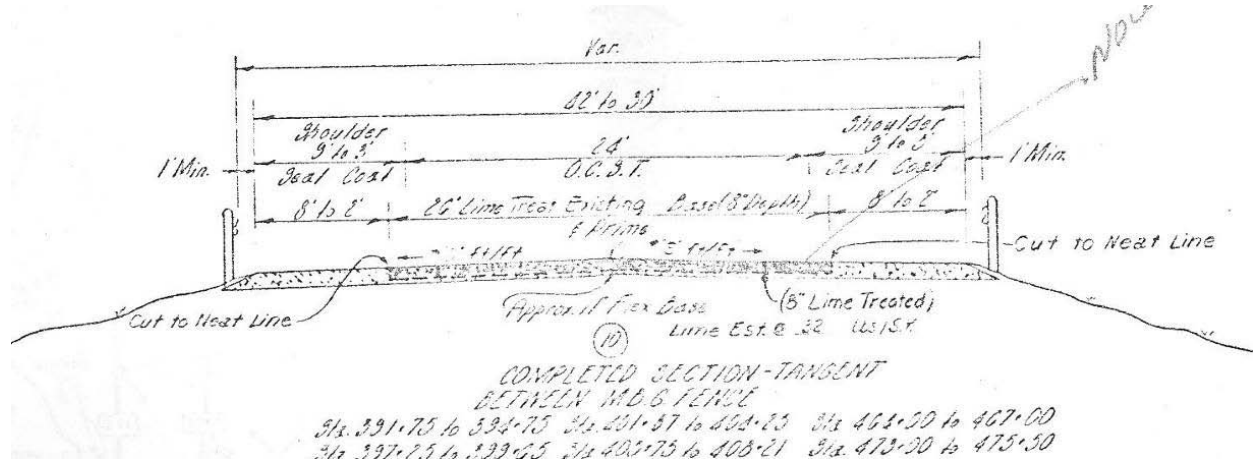 Var.
42' to 30'
Shoulder
9' to 3'
Seal Coat
24'
O.C.S.T.
Shoulder
9' to 3'
Seal Coat
1' Min.
1' Min.
8' to 2'
26' Lime Treat Existing Base (8" Depth)
& Prime
8' to 2'
ft/ft
ft/ft
Cut to Neat Line
Cut to Neat Line
Approx. Flex Base
(8" Lime Treated)
Lime Est. @ 32 Lbs/S.Y.
10
COMPLETED SECTION-TANGENT
BETWEEN M.B.G. FENCE
Sta. 391+75 to 394+75 Sta. 401+87 to 404+25 Sta. 464+00 to 467+00
Sta. 397+25 to 399+65 Sta. 405+75 to 408+21 Sta. 473+00 to 475+50